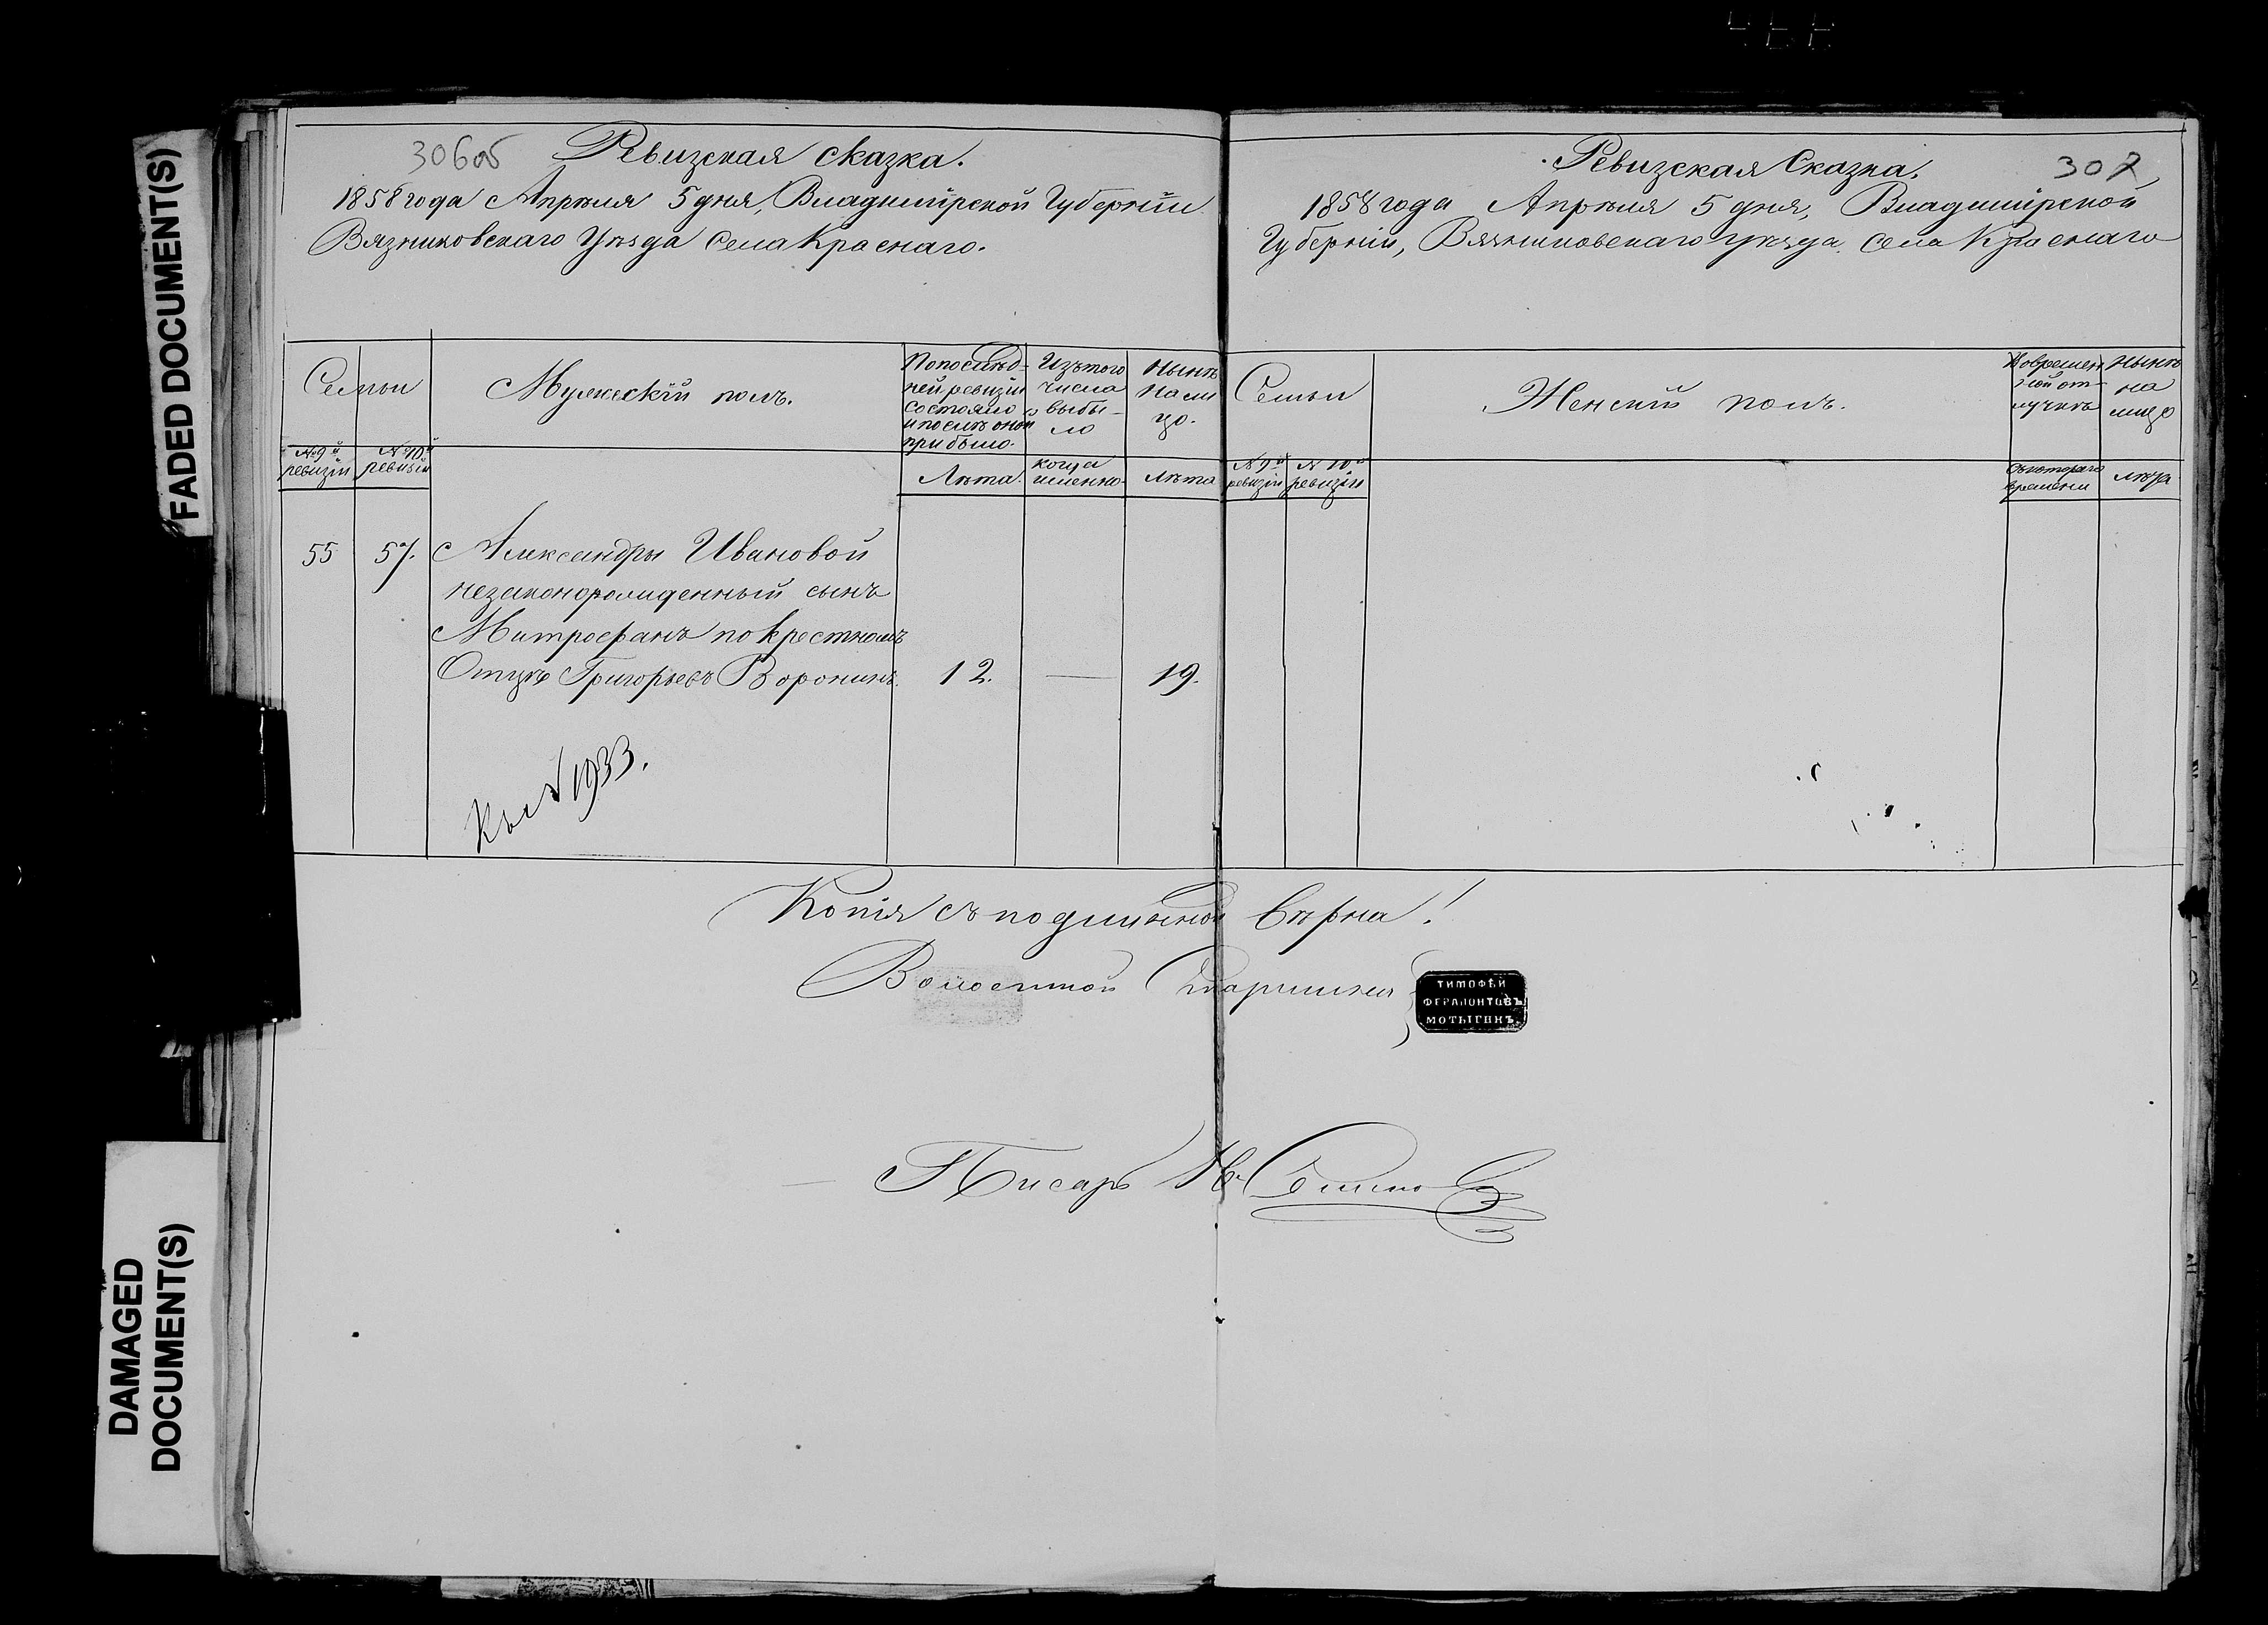 FADED DOCUMENT(S)
DAMAGED
DOCUMENT(S)
306об
Ревизская сказка.
1858 года Апрѣля 5 дня, Владимірской Губерніи
Вязниковскаго Уѣзда Села Краснаго.
Семьи
Мужескій полъ.
По послѣд-
ней ревизіи
состояло
и послѣ оной
прибыло.
Изъ того
числа
выбы-
ло
Нынѣ
на ли
цо.
№ 9й
ревизіи
№ 10й
ревизіи
Лѣта.
когда
именно.
Лѣта
55
57.
Александры Ивановой
незаконорожденный сынъ
Митрофанъ по крестномъ
Отцѣ Григорьевъ Воронинъ.
12.
—
19.
№ 1933.
307
Ревизская Сказка.
1858 года Апрѣля 5 дня, Владимірской
Губерніи, Вязниковскаго уѣзда Села Краснаго
Семьи
Женскій полъ.
Во времен
ной от-
лучкѣ
Нынѣ
на
лицо
№ 9й
ревизіи
№ 10й
ревизіи
съ котораго
времени
лѣта
Копія съ подлинной вѣрна!
Волостной Старшина
ТИМОФѢЙ
ФЕРАПОНТОВЪ
МОТЫГИНЪ
Писарь